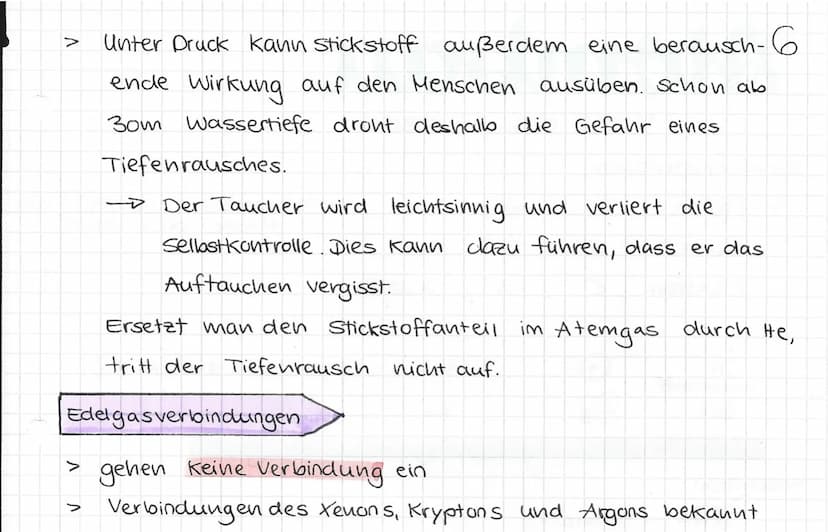 > Unter Druck kann Stickstoff außerdem eine berausch- 6
ende Wirkung auf den Menschen ausüben. Schon ab
30m Wassertiefe droht deshalb die Gefahr eines
Tiefenrausches.
→ Der Taucher wird leichtsinnig und verliert die
Selbstkontrolle. Dies kann dazu führen, dass er das
Auftauchen vergisst.
Ersetzt man den Stickstoffanteil im Atemgas durch He,
tritt der Tiefenrausch nicht auf.
Edelgasverbindungen
> gehen keine Verbindung ein
> Verbindungen des Xenons, Kryptons und Argons bekannt